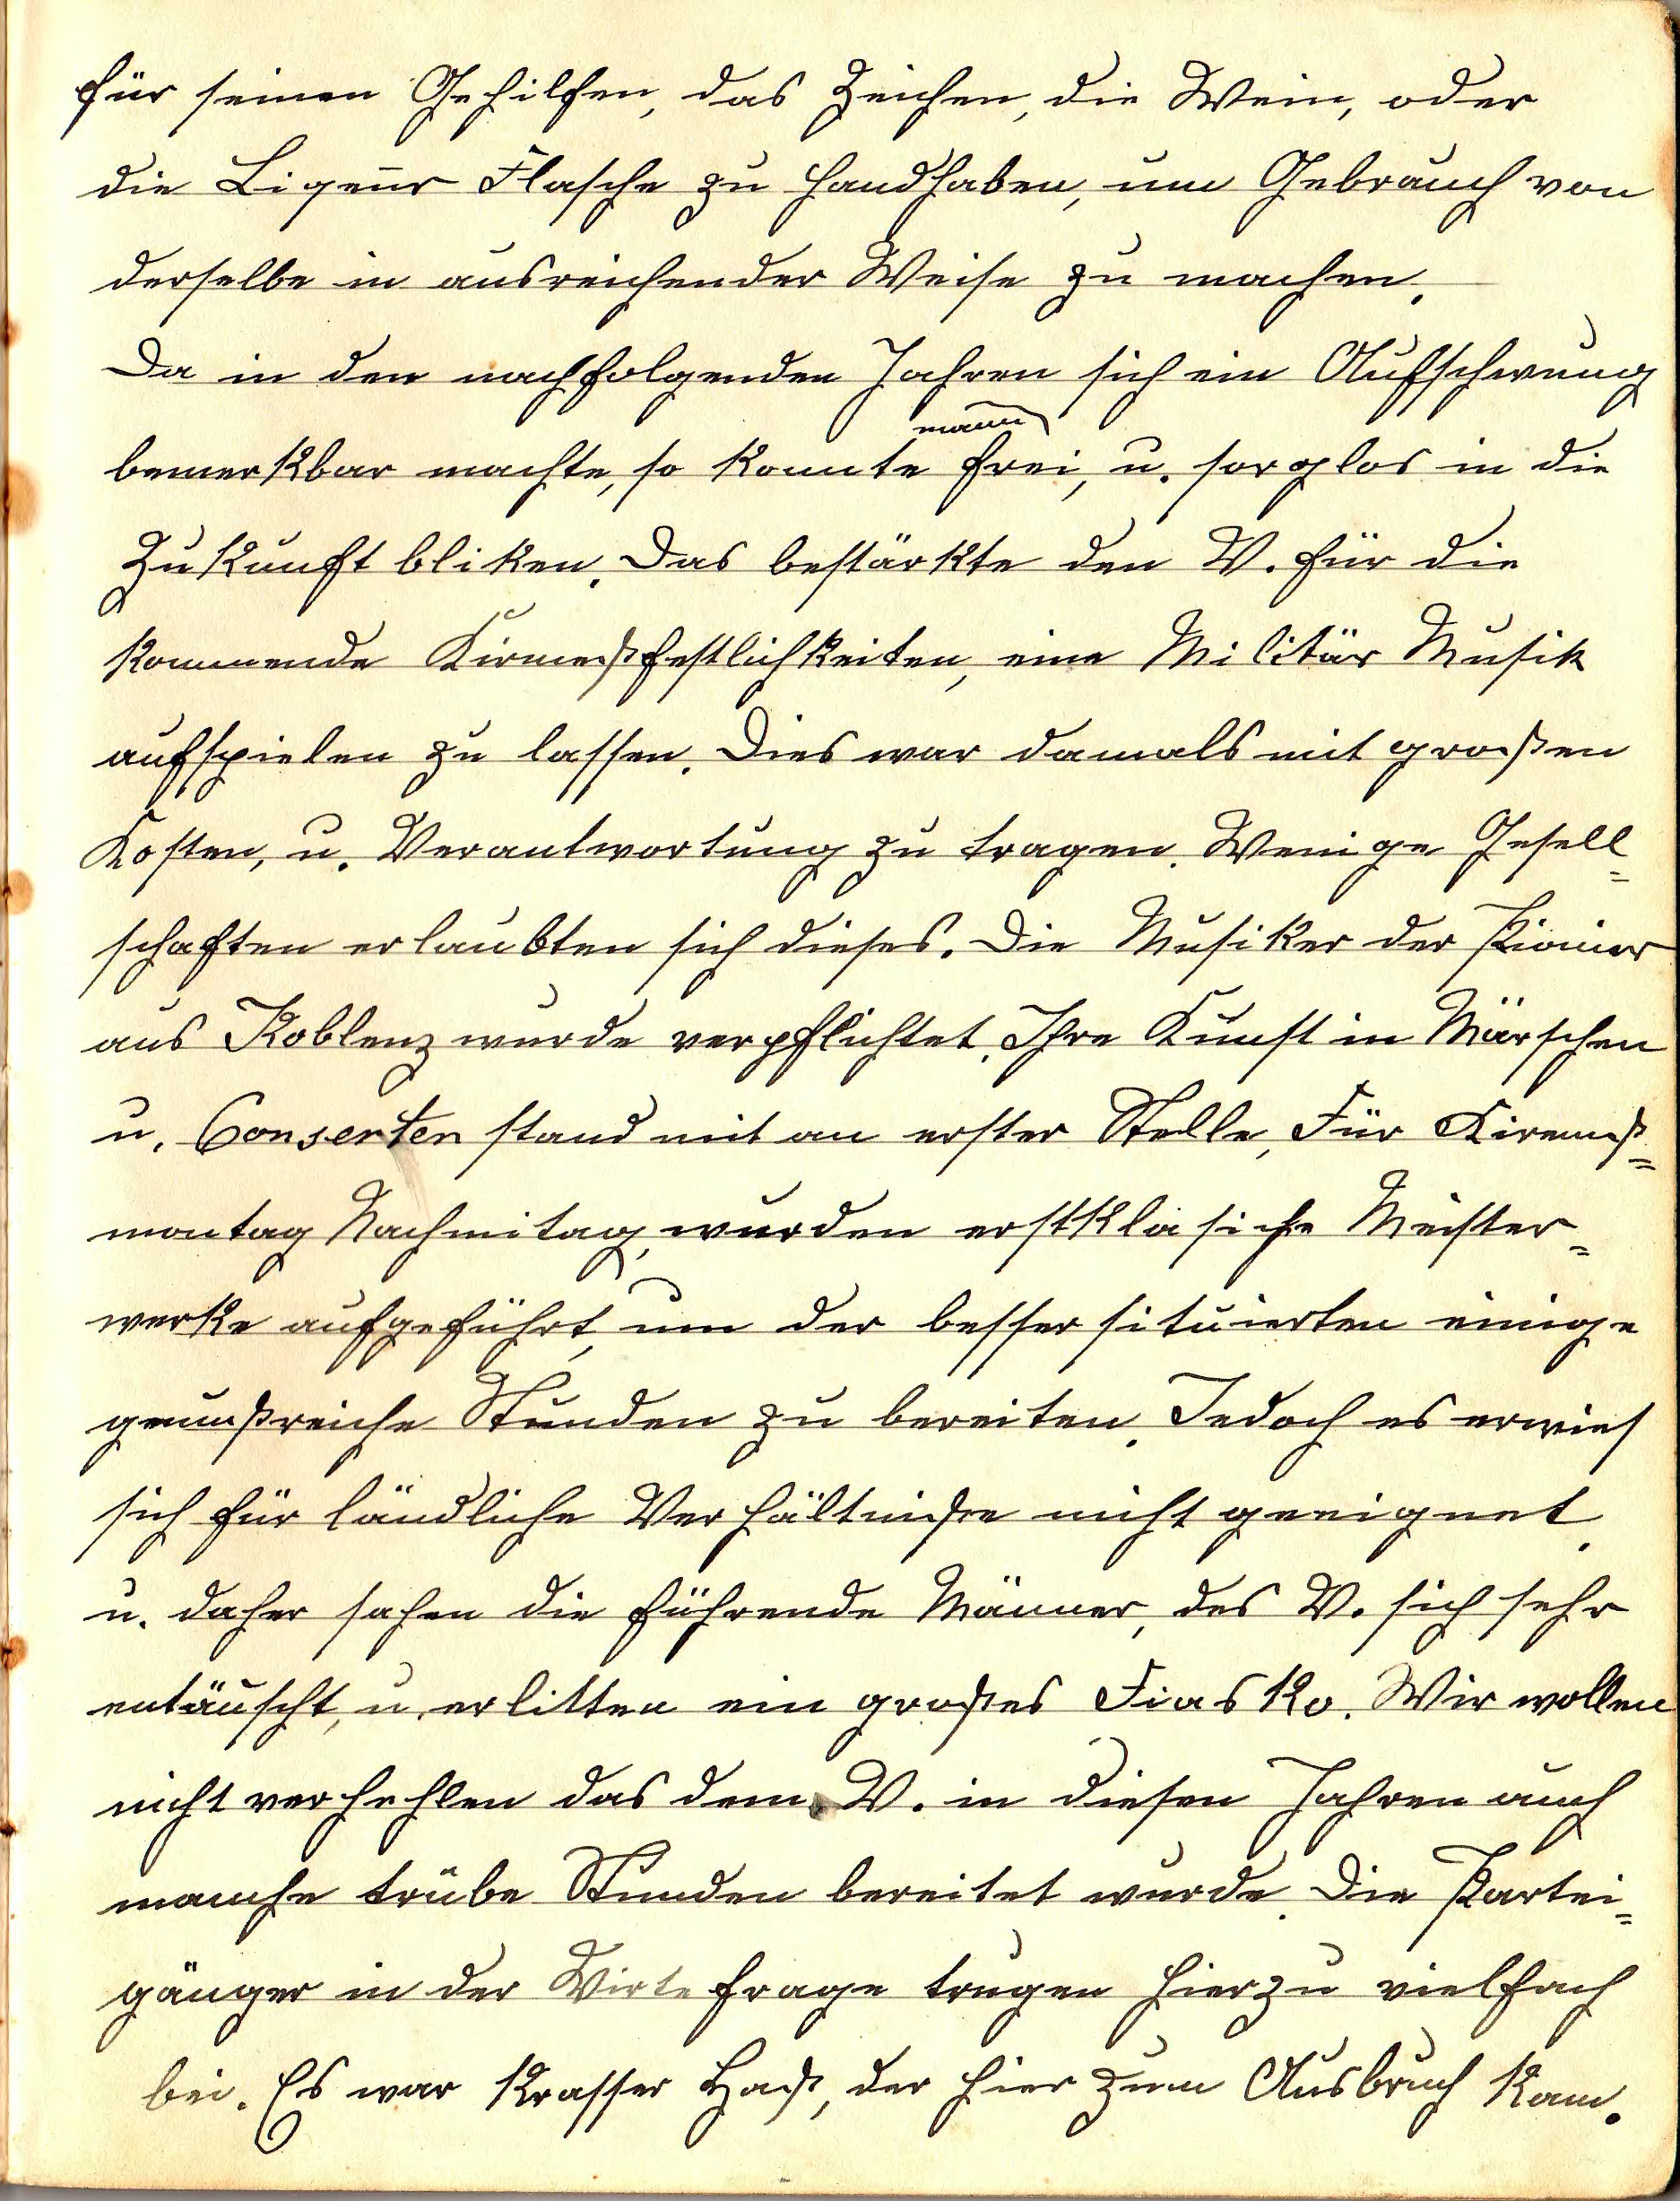 für seinen Gehilfen, das Zeichen, die Wein, oder
die Ligeur Flasche zu handhaben, um Gebrauch von
derselbe in ausreichender Weise zu machen.
Da in den nachfolgenden Jahren sich ein Aufschwung
bemerkbar machte, so konnte mann frei, u. sorglos in die
Zukunft bliken. Das bestärkte den V. für die
kommende Kirmeßfestlichkeiten, eine Militär Musik
aufspielen zu lassen. Dies war damals mit großen
Kosten, u. Verantwortung zu tragen. Wenige Gesell=
schaften erlaubten sich dieses. Die Musiker der Pionier
aus Koblenz wurde verpflichtet. Ihre Kunst in Märschen
u. Conserten stand mit an erster Stelle, Für Kiremeß=
montag Nachmitag, wurden erstklasiche Meister=
werke aufgeführt, um der besser situierten einige
genußreiche Stunden zu bereiten. Jedoch es erwies
sich für ländliche Verhältniße nicht geeignet.
u. daher sahen die führende Männer, des V. sich sehr
entäuscht, u. erlitten ein großes Fiasko. Wir wollen
nicht verhehlen das dem V. in diesen Jahren auch
manche trübe Stunden bereitet wurde. Die Partei=
gänger in der Wirtefrage trugen hierzu vielfach
bei. Es war krasser Haß, der hier zum Ausbruch kam.